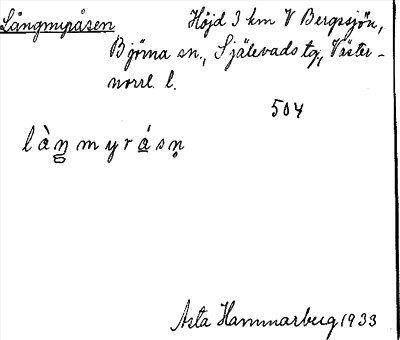 Långmyråsen Höjd 3 km V Bergssjön,
Björna sn., Själevads tg, Väster-
norrl. l.
504
làŋ̲myrá̲sn̥
Asta Hammarberg 1933